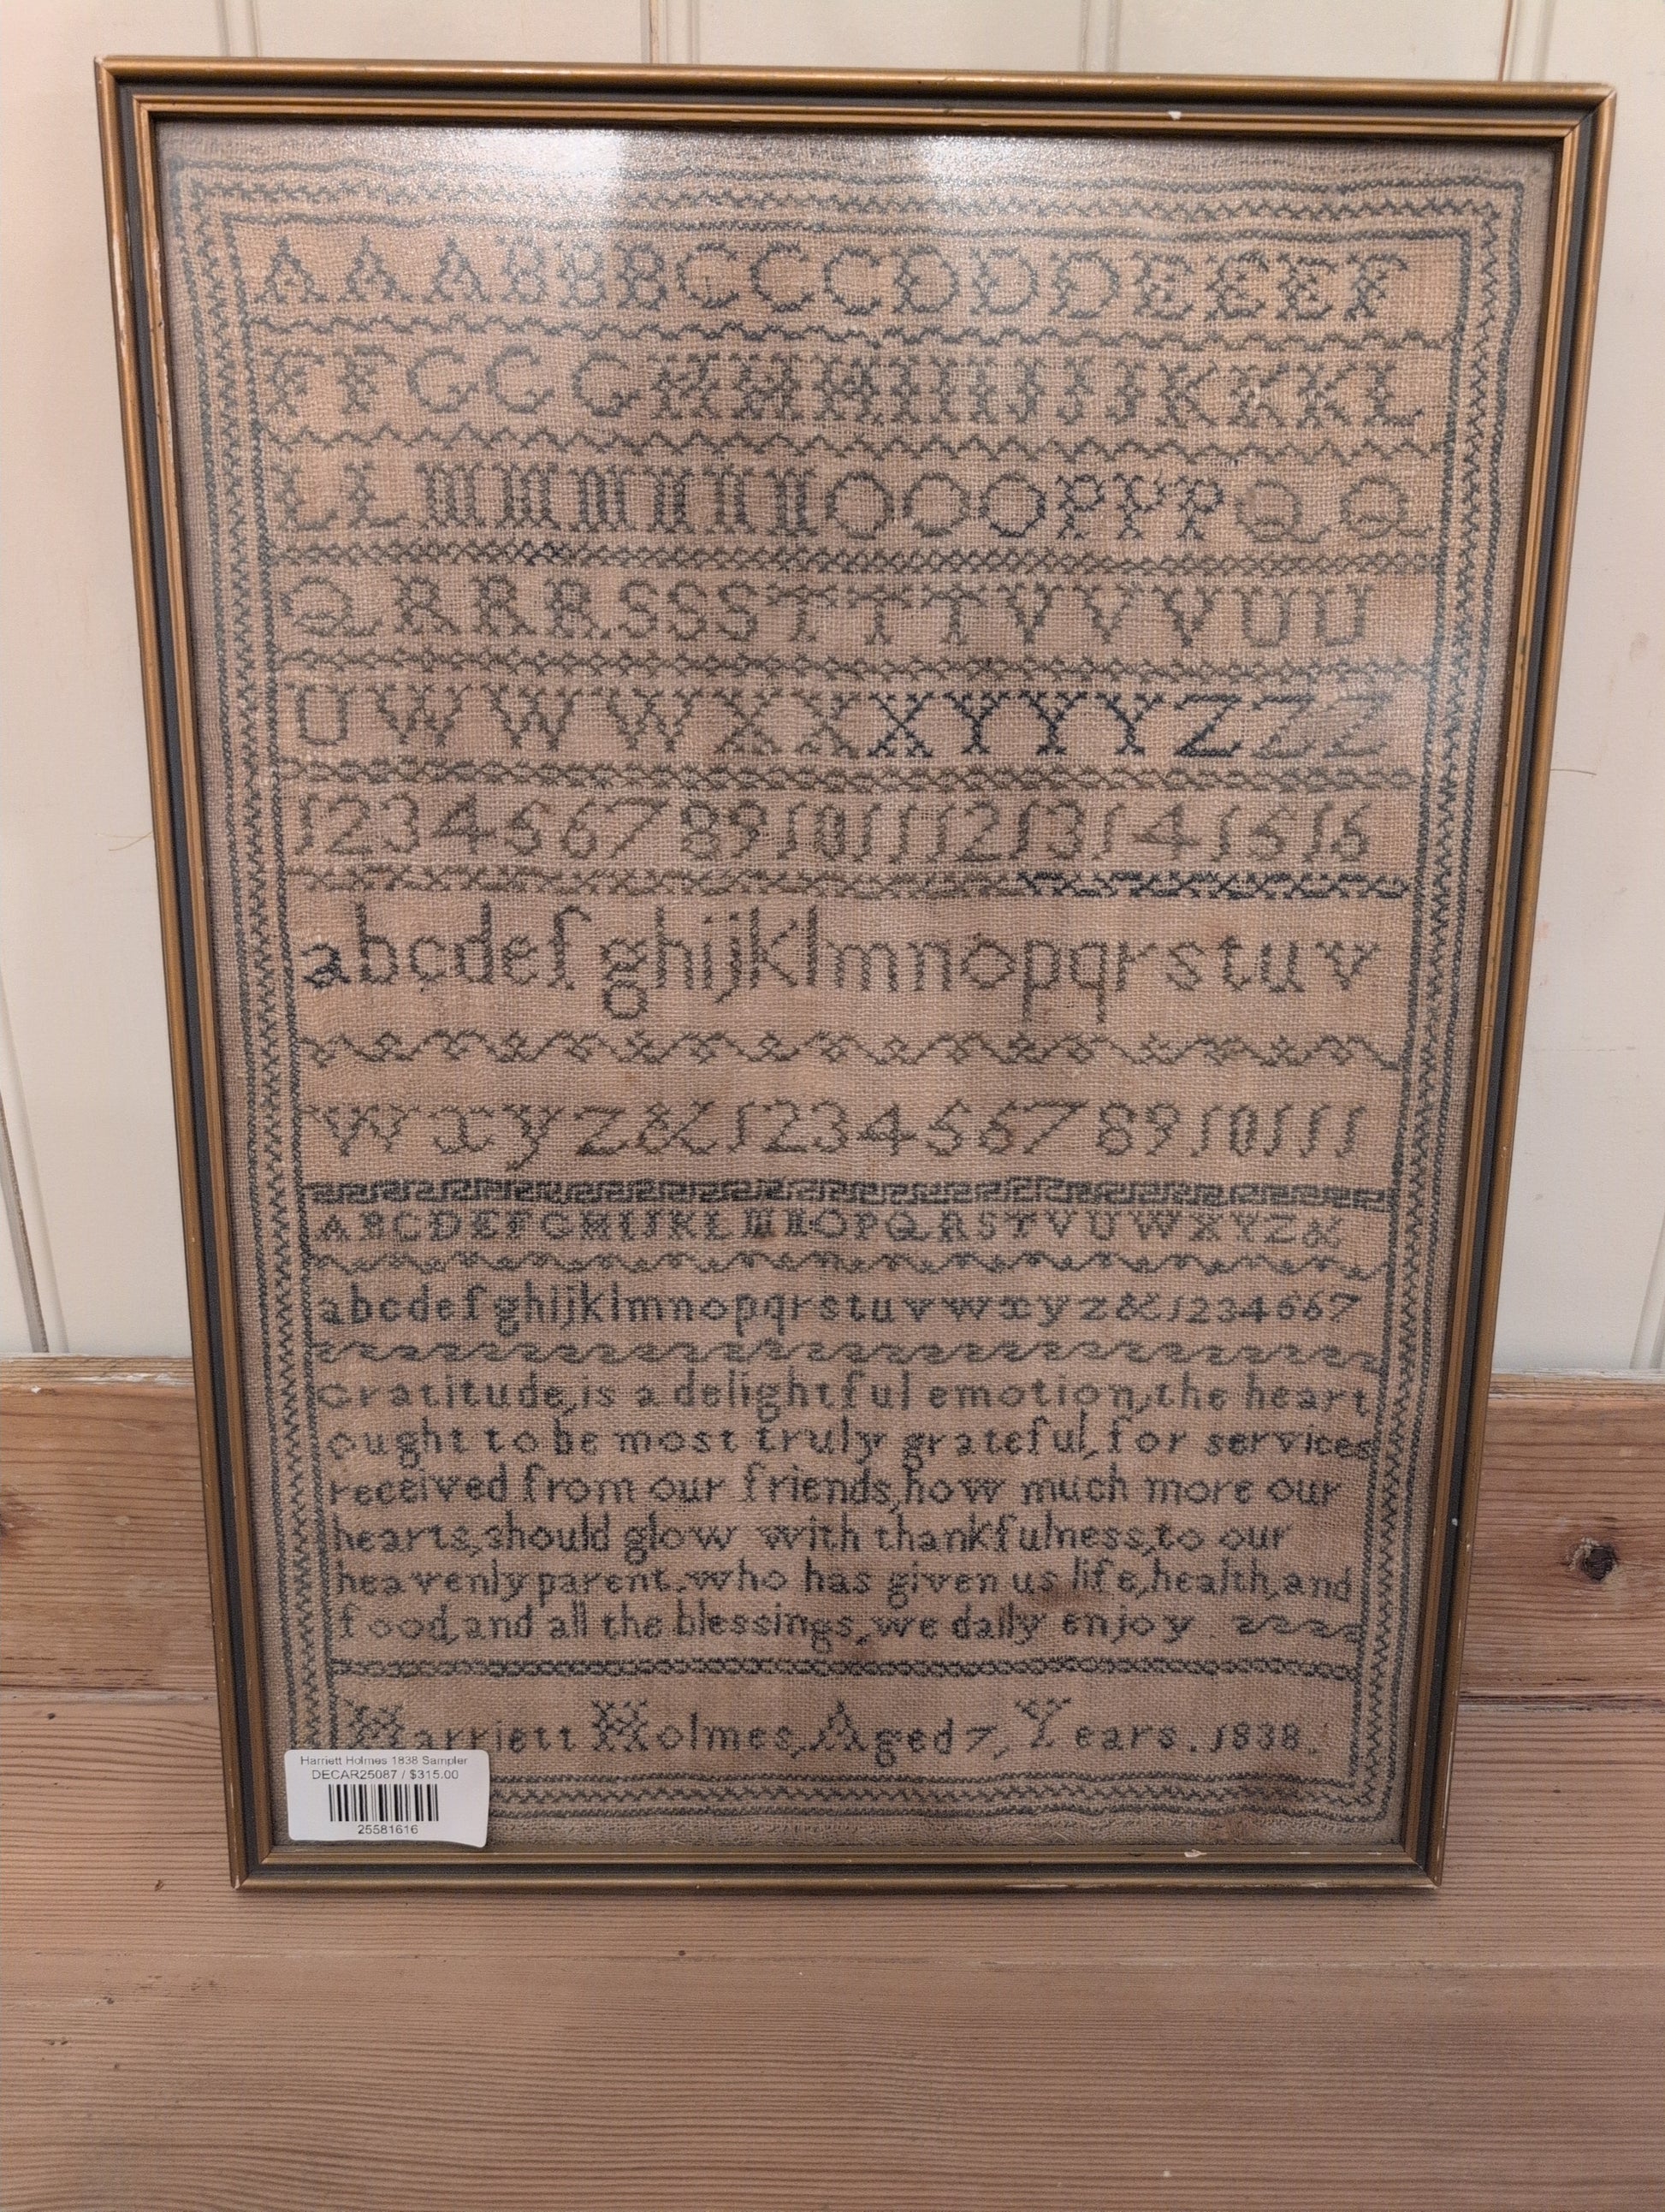 A A A B B B C C C D D D E E E F
F F G G G H H H I I I J J J K K K L
L L M M M N N N O O O P P P Q Q
Q R R R S S S T T T V V V U U
U W W W X X X Y Y Y Z Z Z
1 2 3 4 5 6 7 8 9 10 11 12 13 14 15 16
a b c d e f g h i j k l m n o p q r s t u v
w x y z & 1 2 3 4 5 6 7 8 9 10 11 1
A B C D E F G H I J K L M N O P Q R S T V U W X Y Z &
a b c d e f g h i j k l m n o p q r s t u v w x y z & 1 2 3 4 5 6 7
Gratitude, is a delightful emotion, the heart
ought to be most truly grateful, for services
received from our friends, how much more our
hearts, should glow with thankfulness, to our
heavenly parent. who has given us life, health, and
food, and all the blessings, we daily enjoy
Harriett Holmes, Aged 7, Years. 1838.
Harriett Holmes 1838 Sampler
DECAR25087 / $315.00
25581616